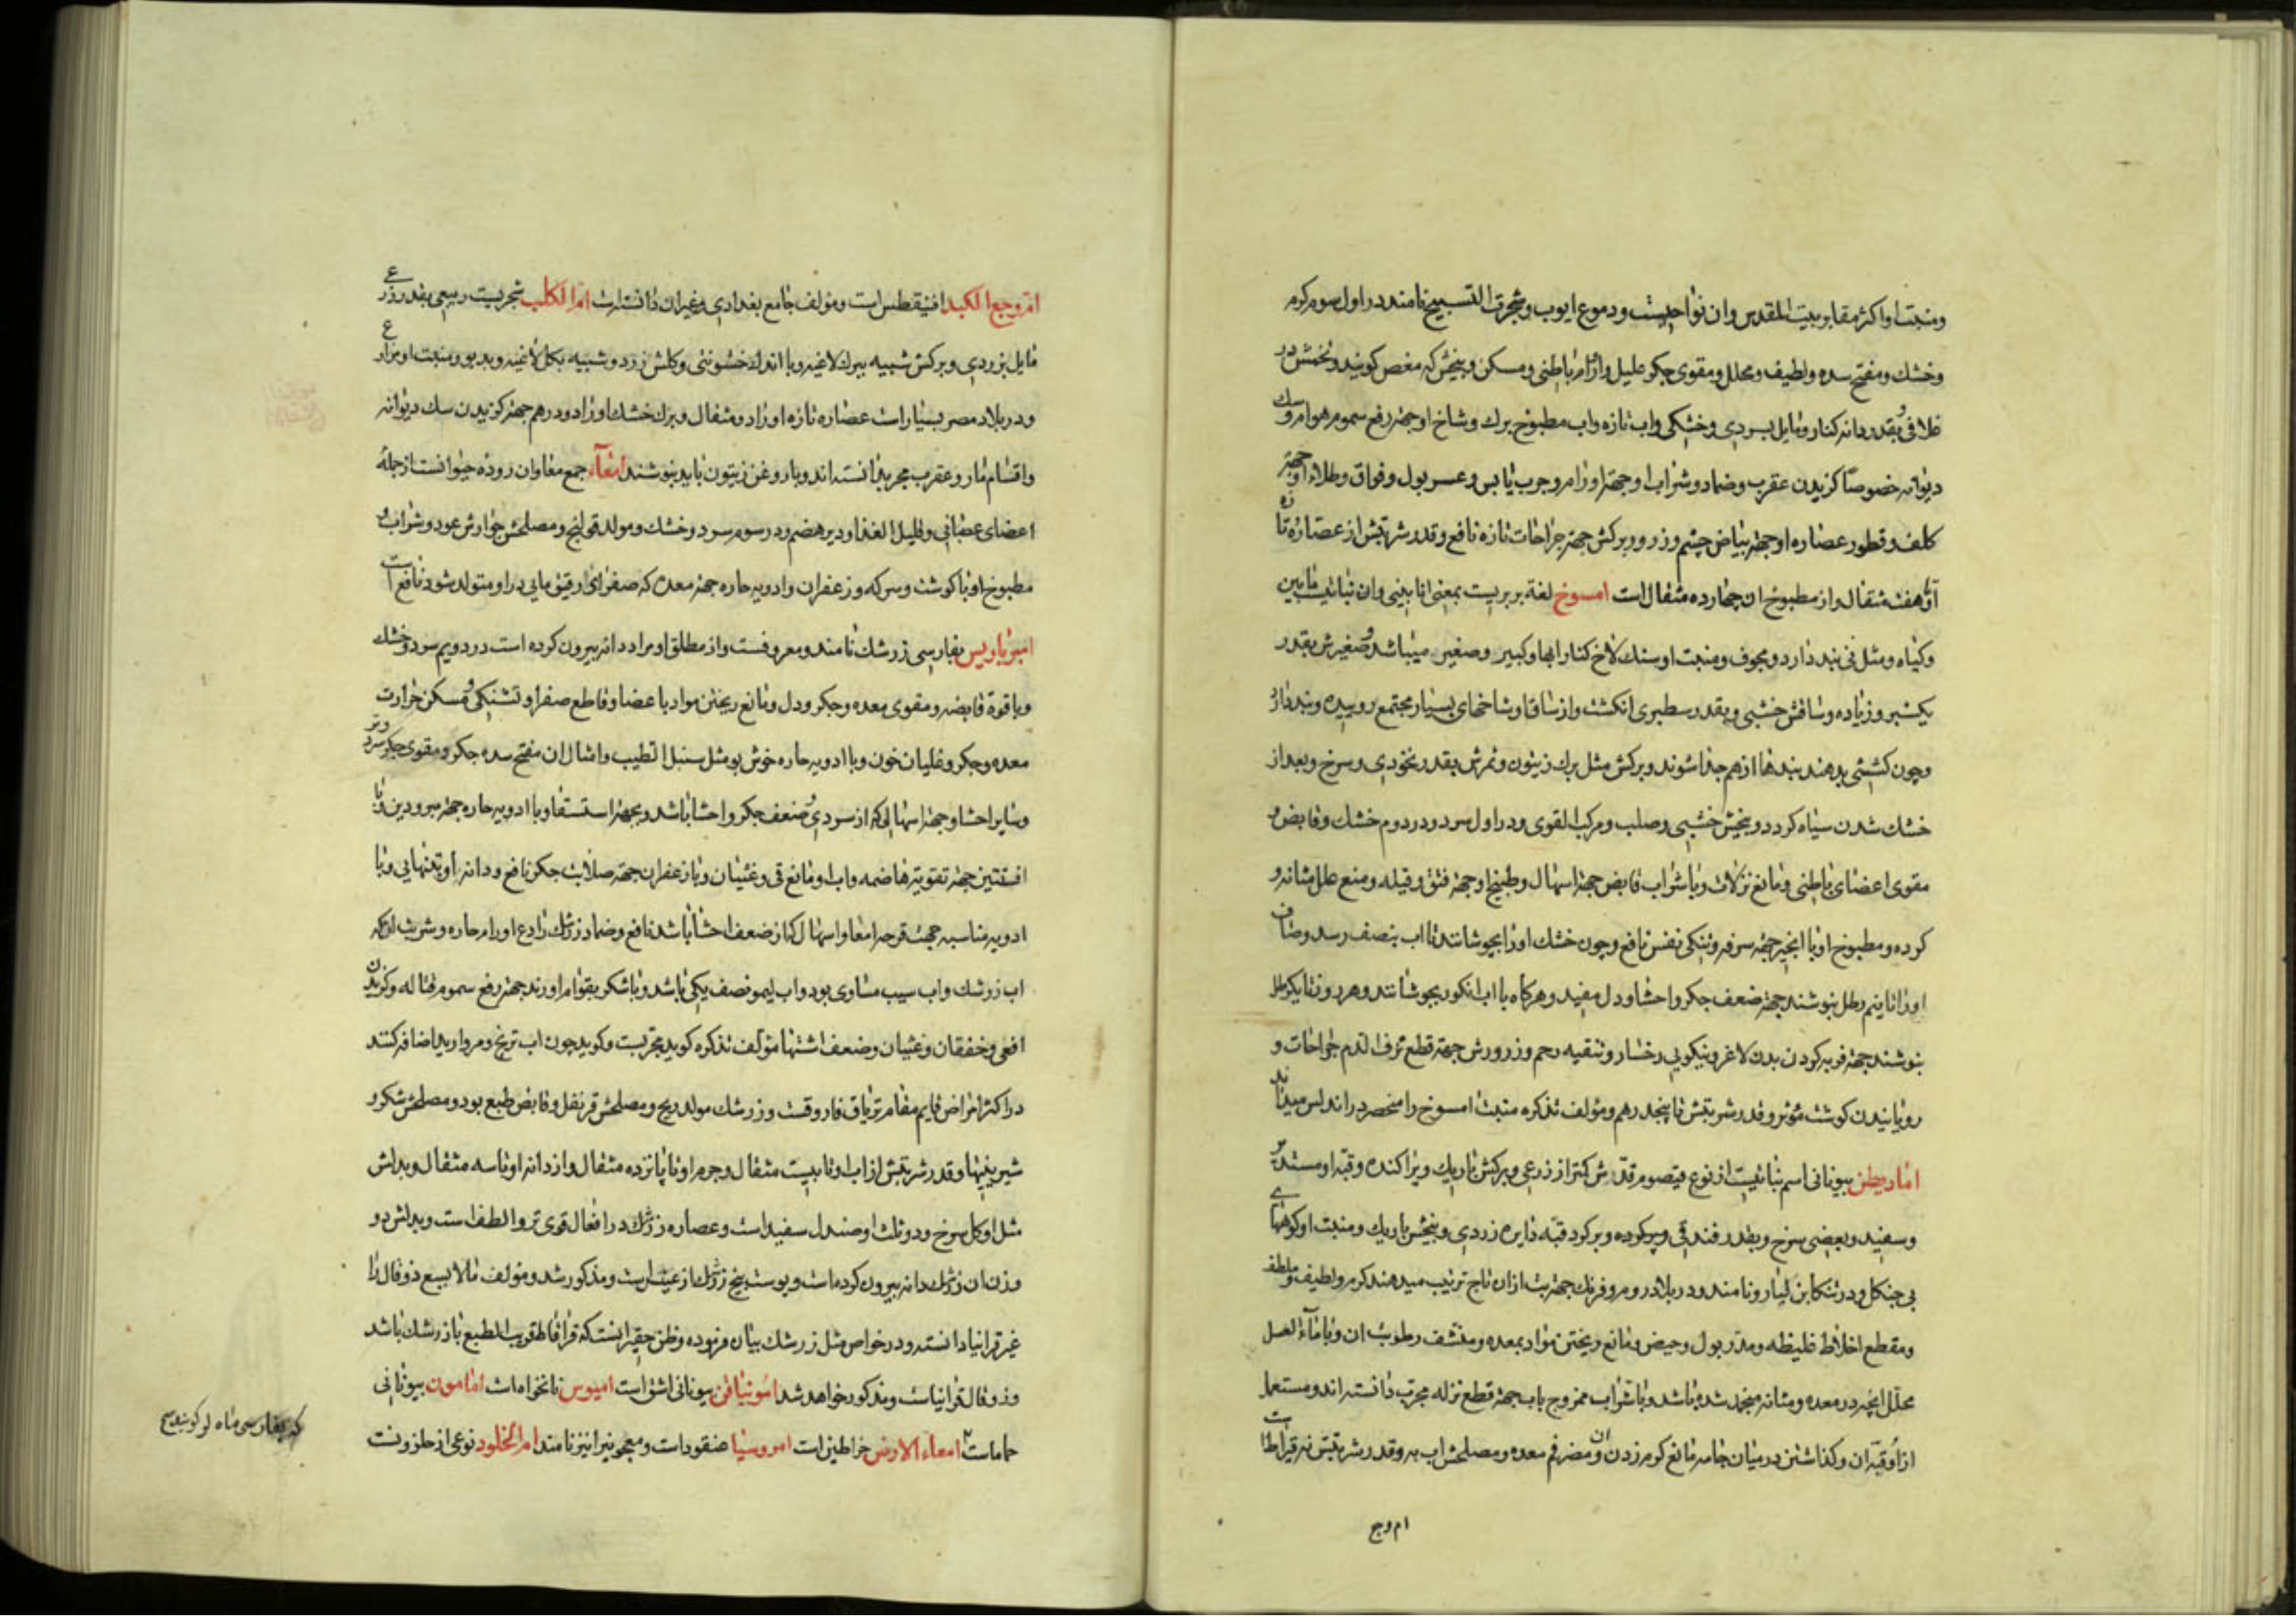 ومنبت او اکثر مقابر بیت المقدس و ان نواحیست و دموع ایوب و شجرة التسبیح نامند در اول سوم کرم
و خشک و مفتح سده و لطیف و محلل و مقوی جکر علیل و اورام باطنی و مسکن و بیخش که مغص کویند و تخمش در
غلافی بقدر دانه کنار و مایل بسردی و خشکی و اب تازه و اب مطبوخ برک و شاخ او جهة رفع سموم هوام و سک
دیوانه خصوصا کزیدن عقرب و ضماد و شراب او جهة اورام و جرب یابس و عسر بول و فواق و طلاء او جهة
کلف و قطور عصاره او جهة بیاض چشم و زرور برکش جهة جراحات تازه نافع و قدر شربتش از عصاره تازه
او هفت مثقال و از مطبوخ ان چهارده مثقال است امسوخ لغة بربریست بمعنی انابینی و ان نباتیست مابین
و کیاه و مثل نی بند دارد و مجوف و منبت او سنک لاخ کنار ابها و کبیر و صغیر میباشد و صغیرش بقدر
یکشبر و زیاده و ساقش خشبی و بقدر سطبری انکشت و از ساق او شاخهای بسیار مجتمع روییده و بند دار
و چون کششی بدهند بندها از هم جدا شوند و برکش مثل برک زیتون و ثمرش بقدر نخودی و سرخ و بعد از
خشک شدن سیاه کردد و بیخش خشبی و صلب و مرکب القوی و در اول سرد و در دوم خشک و قابض و
مقوی اعضای باطنی و مانع نزلات و با شراب قابض جهة اسهال و طبیخ او جهة فتق و قیله و منع علل مثانه و
کرده و مطبوخ او با انجیر جهة سرفه و تنکی نفس نافع و چون خشک او را بجوشانند تا اب بنصف رسد و صاف
او را تا نیم رطل بنوشند جهة ضعف جکر و احشا و دل مفید و هرکاه با اب انکور بجوشانند و هر روز تا یکرطل
بنوشند جهة فربه کردن بدن لاغر و نیکویی رخسار و تنقیه رحم و زرورش جهة قطع نزف الدم جراحات و
رویانیدن کوشت مؤثر و قدر شربتش تا پنجدرهم و مؤلف تذکره منبت امسوخ را منحصر در اندلس میداند
اماریطن بیونانی اسم نباتیست از نوع قیصوم قدش کمتر از ذرعی و برکش باریک و پراکنده و قبه او مستدیر
و سفید و بعضی سرخ و بقدر فندقی و پرکرده و بر کرد قبه دایره زردی و بیخش باریک و منبت او کوههای
بی جنکل و در تنکابن کلیارو نامند و در بلاد روم و فرنک جهة بت ازان تاج ترتیب میدهند کرم و لطیف و ملطف
و مقطع اخلاط غلیظه و مدر بول و حیض و مانع ریختن مواد بمعده و منشف رطوبت ان و با ماء العسل
محلل انچه در معده و مثانه منجمد شده باشد و با شراب ممزوج باب جهة قطع نزله مجرب دانسته اند و مستعمل
ازو قبه ان و کذاشتن در میان جامه مانع کرم زدن ان و مضر فم معده و مصلحش اب به و قدر شربتش نه قیراط است
ام وجع
ام وجع الکبد افنیقطس است و مؤلف جامع بغدادی غیر ان دانسته است ام الکلب شجریست ربیعی بقدر ذرعی
مایل بزردی و برکش شبیه ببرک لاغیه و با اندک خشونتی و کلش زرد و شبیه بکل لاغیه و بدبو و منبت او مزارع
و در بلاد مصر بسیار است عصاره تازه او را دو مثقال و برک خشک او را دو درهم جهة کزیدن سک دیوانه
و اقسام مار و عقرب مجرب دانسته اند و با روغن زیتون باید بنوشند امعاء جمع معا و ان روده حیوانست از جمله
اعضای عصبانی و قلیل الغذا و دیر هضم و در سوم سرد و خشک و مولد قولنج و مصلحش جوارش عود و شراب و
مطبوخ او با کوشت و سرکه و زعفران و ادویه حاره جهة معده که صفرای رقیق مایی در او متولد شود نافع است
امبرباریس بفارسی زرشک نامند و معروفست و از مطلق او مراد دانه بیرون کرده است در دویم سرد و خشک
و با قوة قابضه و مقوی معده و جکر و دل و مانع ریختن مواد باعضا و قاطع صفرا و تشنکی و مسکن حرارت
معده و جکر و غلیان خون و با ادویه حاره خوش بو مثل سنبل الطیب و امثال ان مفتح سده جکر و مقوی جکر سرد و تر
و سایر احشا و جهة اسهالی که از سردی و ضعف جکر و احشا باشد و بجهة استسقا و با ادویه حاره جهة مبرودین و با
افسنتین جهة تقویة هاضمه و اب او مانع قی و غثیان و با زعفران جهة صلابت جکر نافع و دانه او بتنهایی و با
ادویه مناسبه جهت قرحه امعا و اسهال که از ضعف احشا باشد نافع و ضماد زرشک رادع اورام حاره و شربت ان که
اب زرشک و اب سیب مساوی بود و اب لیمو نصف یکی باشد و با شکر بقوام اورند جهة رفع سموم قتاله و کزیدن
افعی و خفقان و غثیان و ضعف اشتها مؤلف تذکره کوید مجربست و کوید چون اب ترنج و مروارید اضافه کنند
در اکثر امراض قایم مقام تریاق فاروقست و زرشک مولد ریح و مصلحش قرنفل و قابض طبع بود و مصلحش شکر و
شیرینیها و قدر شربتش از اب او تا بیست مثقال و جرم او تا پانزده مثقال و از دانه او تا سه مثقال و بدلش
مثل او کل سرخ و دو ثلث او صندل سفید است و عصاره زرشک در افعال قوی تر و الطف است و بدلش دو
وزن ان زرشک دانه بیرون کرده است و پوست بیخ زرشک ارغیس است و مذکور شد و مؤلف مالایسع ذوقال را
غیر قرانیا دانسته و در خواص مثل زرشک بیان فرموده و ظن حقیر انست که قراقاط قریب الطبع با زرشک باشد
و ذوقال قرانیاست و مذکور خواهد شد امونیاقن بیونانی اشق است امیوس نانخواه است امامون بیونانی
حماماست امعاء الارض خراطین است امروسیا عنقود است و معجونیرا نیز نامند ام الخلود نوعی از حلزونست